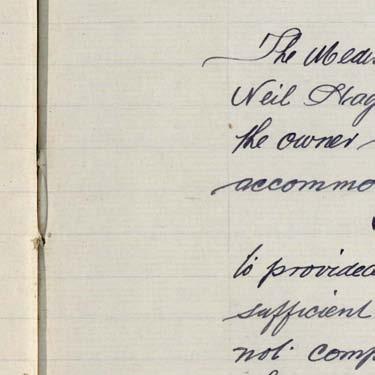 The Medi
Neil Hag
the owner
accommo
to provided
sufficient
not comp